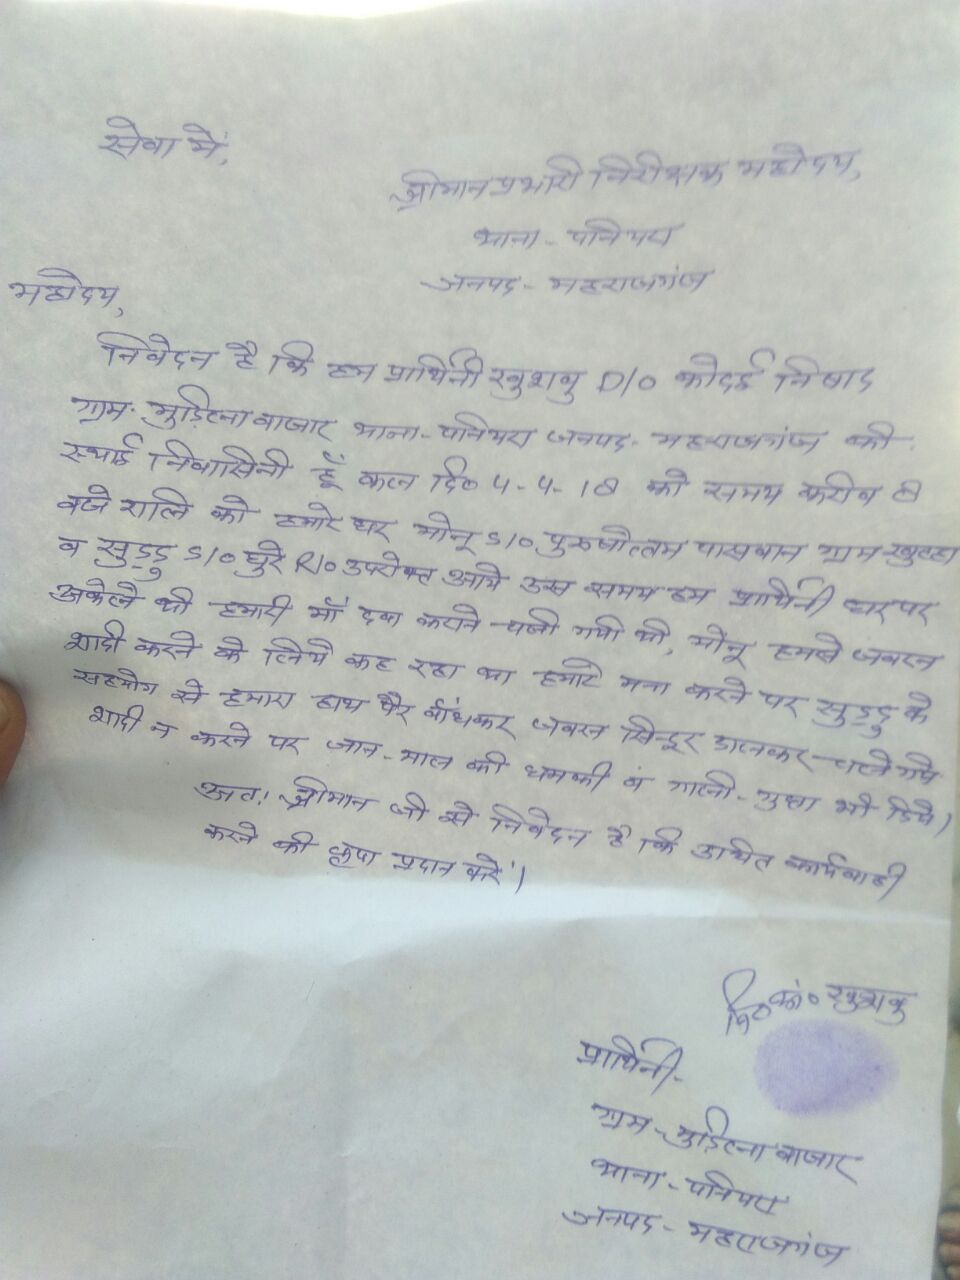 सेवा में,
श्रीमान प्रभारी निरीक्षक महोदय,
थाना - पनियरा
जनपद - महराजगंज
महोदय,
निवेदन है कि हम प्रार्थिनी खुशबु D/O कोदई निषाद
ग्राम - मुड़िला बाजार थाना - पनियरा जनपद - महराजगंज की
स्थाई निवासिनी हूँ कल दि० 4-4-18 को समय करीब 8
बजे रात्रि को हमारे घर मोनू S/O पुरुषोत्तम पासवान ग्राम
व सुड्डु S/O घुरे R/O उपरोक्त आये उस समय हम प्रार्थिनी घर पर
अकेले थी हमारी माँ दवा कराने चली गयी थी, मोनू हमसे जबरन
शादी करने के लिये कह रहा था हमारे मना करने पर सुड्डु के
सहयोग से हमारा हाथ पैर बांधकर जबरन सिन्दूर डालकर चले गये
शादी न करने पर जान - माल की धमकी व गाली - गुप्ता भी दिये।
अतः श्रीमान जी से निवेदन है कि उचित कार्यवाही
करने की कृपा प्रदान करें।
नि० अं० खुशबु
प्रार्थिनी -
ग्राम - मुड़िला बाजार
थाना - पनियरा
जनपद - महराजगंज